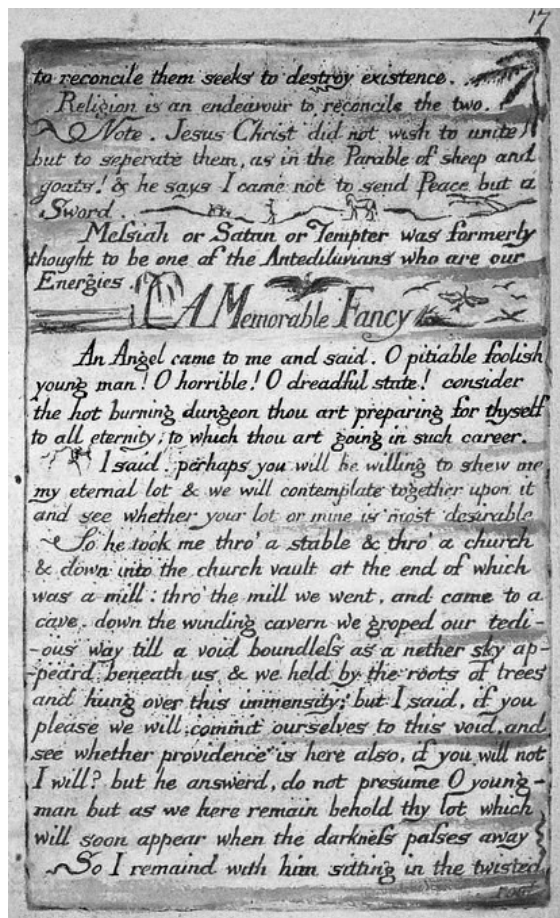 17
to reconcile them seeks to destroy existence.
Religion is an endeavour to reconcile the two.
Note. Jesus Christ did not wish to unite
but to seperate them, as in the Parable of sheep and
goats! & he says I came not to send Peace but a
Sword.
Meſsiah or Satan or Tempter was formerly
thought to be one of the Antediluvians who are our
Energies.
A Memorable Fancy
An Angel came to me and said. O pitiable foolish
young man! O horrible! O dreadful state! consider
the hot burning dungeon thou art preparing for thyself
to all eternity, to which thou art going in such career.
I said. perhaps you will be willing to shew me
my eternal lot & we will contemplate together upon it
and see whether your lot or mine is most desirable
So he took me thro' a stable & thro' a church
& down into the church vault at the end of which
was a mill: thro' the mill we went, and came to a
cave. down the winding cavern we groped our tedi-
-ous way till a void boundleſs as a nether sky ap-
-peard beneath us & we held by the roots of trees
and hung over this immensity; but I said, if you
please we will commit ourselves to this void, and
see whether providence is here also, if you will not
I will? but he answerd, do not presume O young-
man but as we here remain behold thy lot which
will soon appear when the darkneſs paſses away
So I remaind with him sitting in the twisted
root